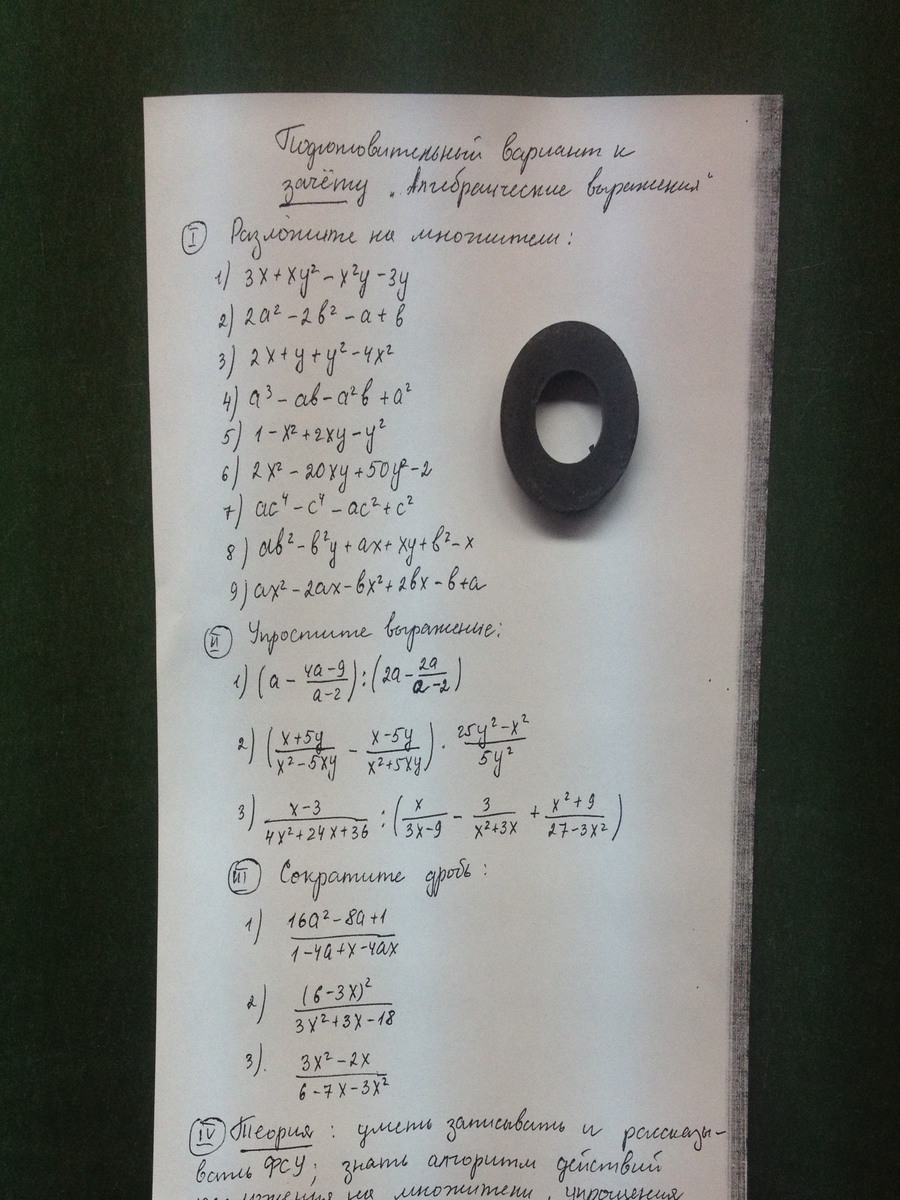 Подготовительный вариант к
зачёту „Алгебраические выражения"
I Разложите на множители:
1) 3x+xy²-x²y-3y
2) 2a²-2b²-a+b
3) 2x+y+y²-4x²
4) a³-ab-a²b+a²
5) 1-x²+2xy-y²
6) 2x²-20xy+50y²-2
7) ac⁴-c⁴-ac²+c²
8) ab²-b²y+ax+xy+b²-x
9) ax²-2ax-bx²+2bx-b+a
II Упростите выражение:
1) (a - (4a-9)/(a-2)) : (2a - 2a/(a-2))
2) ((x+5y)/(x²-5xy) - (x-5y)/(x²+5xy)) · (25y²-x²)/(5y²)
3) (x-3)/(4x²+24x+36) : (x/(3x-9) - 3/(x²+3x) + (x²+9)/(27-3x²))
III Сократите дробь:
1) (16a²-8a+1)/(1-4a+x-4ax)
2) (6-3x)²/(3x²+3x-18)
3). (3x²-2x)/(6-7x-3x²)
IV Теория: уметь записывать и рассказы-
вать ФСУ; знать алгоритм действий
на множители, упрощения